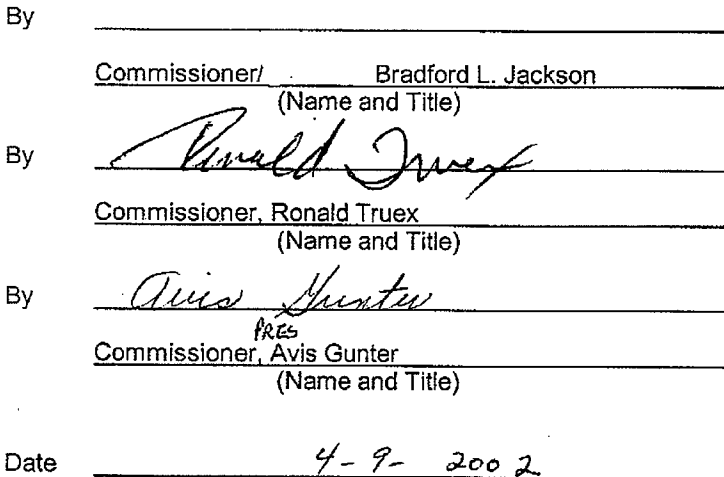 By
Commissioner/ Bradford L. Jackson
(Name and Title)
By Ronald Truex
Commissioner, Ronald Truex
(Name and Title)
By Avis Gunter
PRES
Commissioner, Avis Gunter
(Name and Title)
Date 4-9-2002